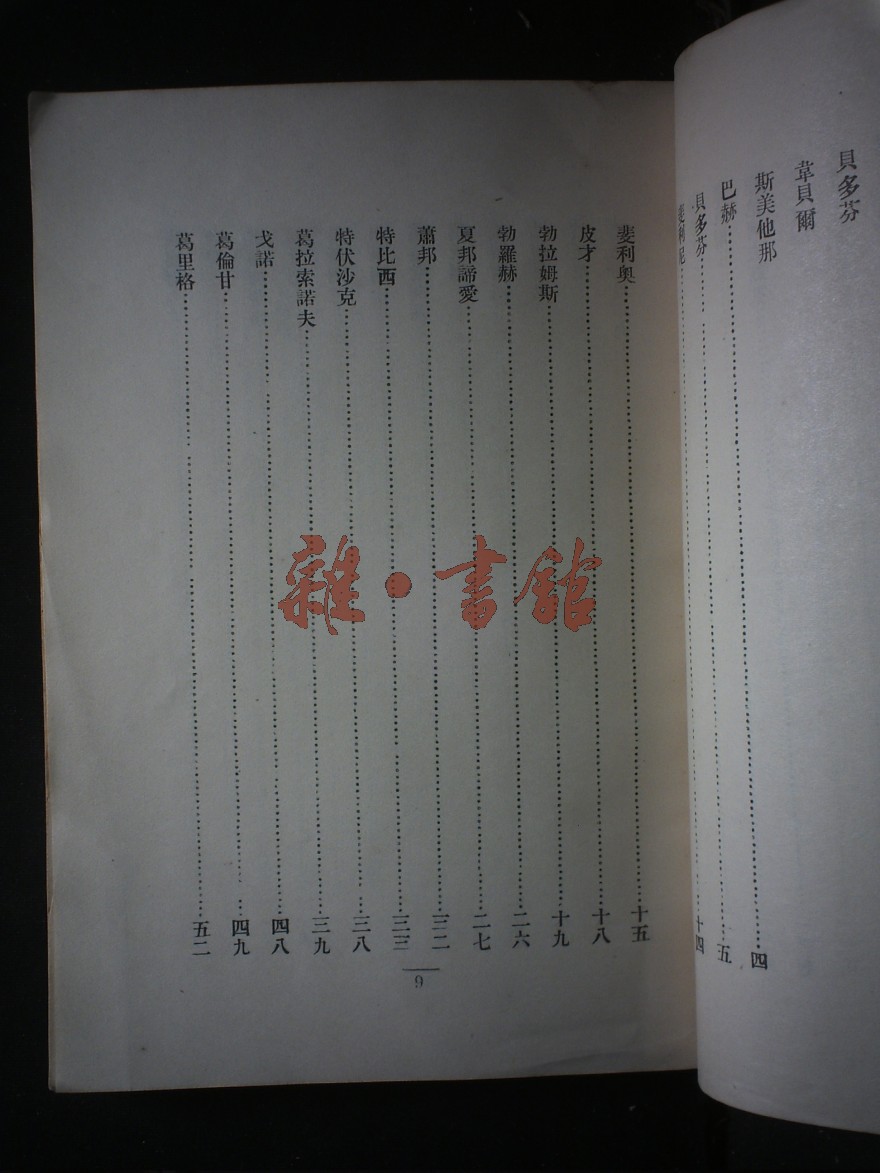 貝多芬
韋貝爾
斯美他那……四
巴赫……五
貝多芬……十四
斐利尼
斐利奧……十五
皮才……十八
勃拉姆斯……十九
勃羅赫……二六
夏邦諦愛……二七
蕭邦……三二
特比西……三三
特伏沙克……三八
葛拉索諾夫……三九
戈諾……四八
葛倫甘……四九
葛里格……五二
9
雜·書館